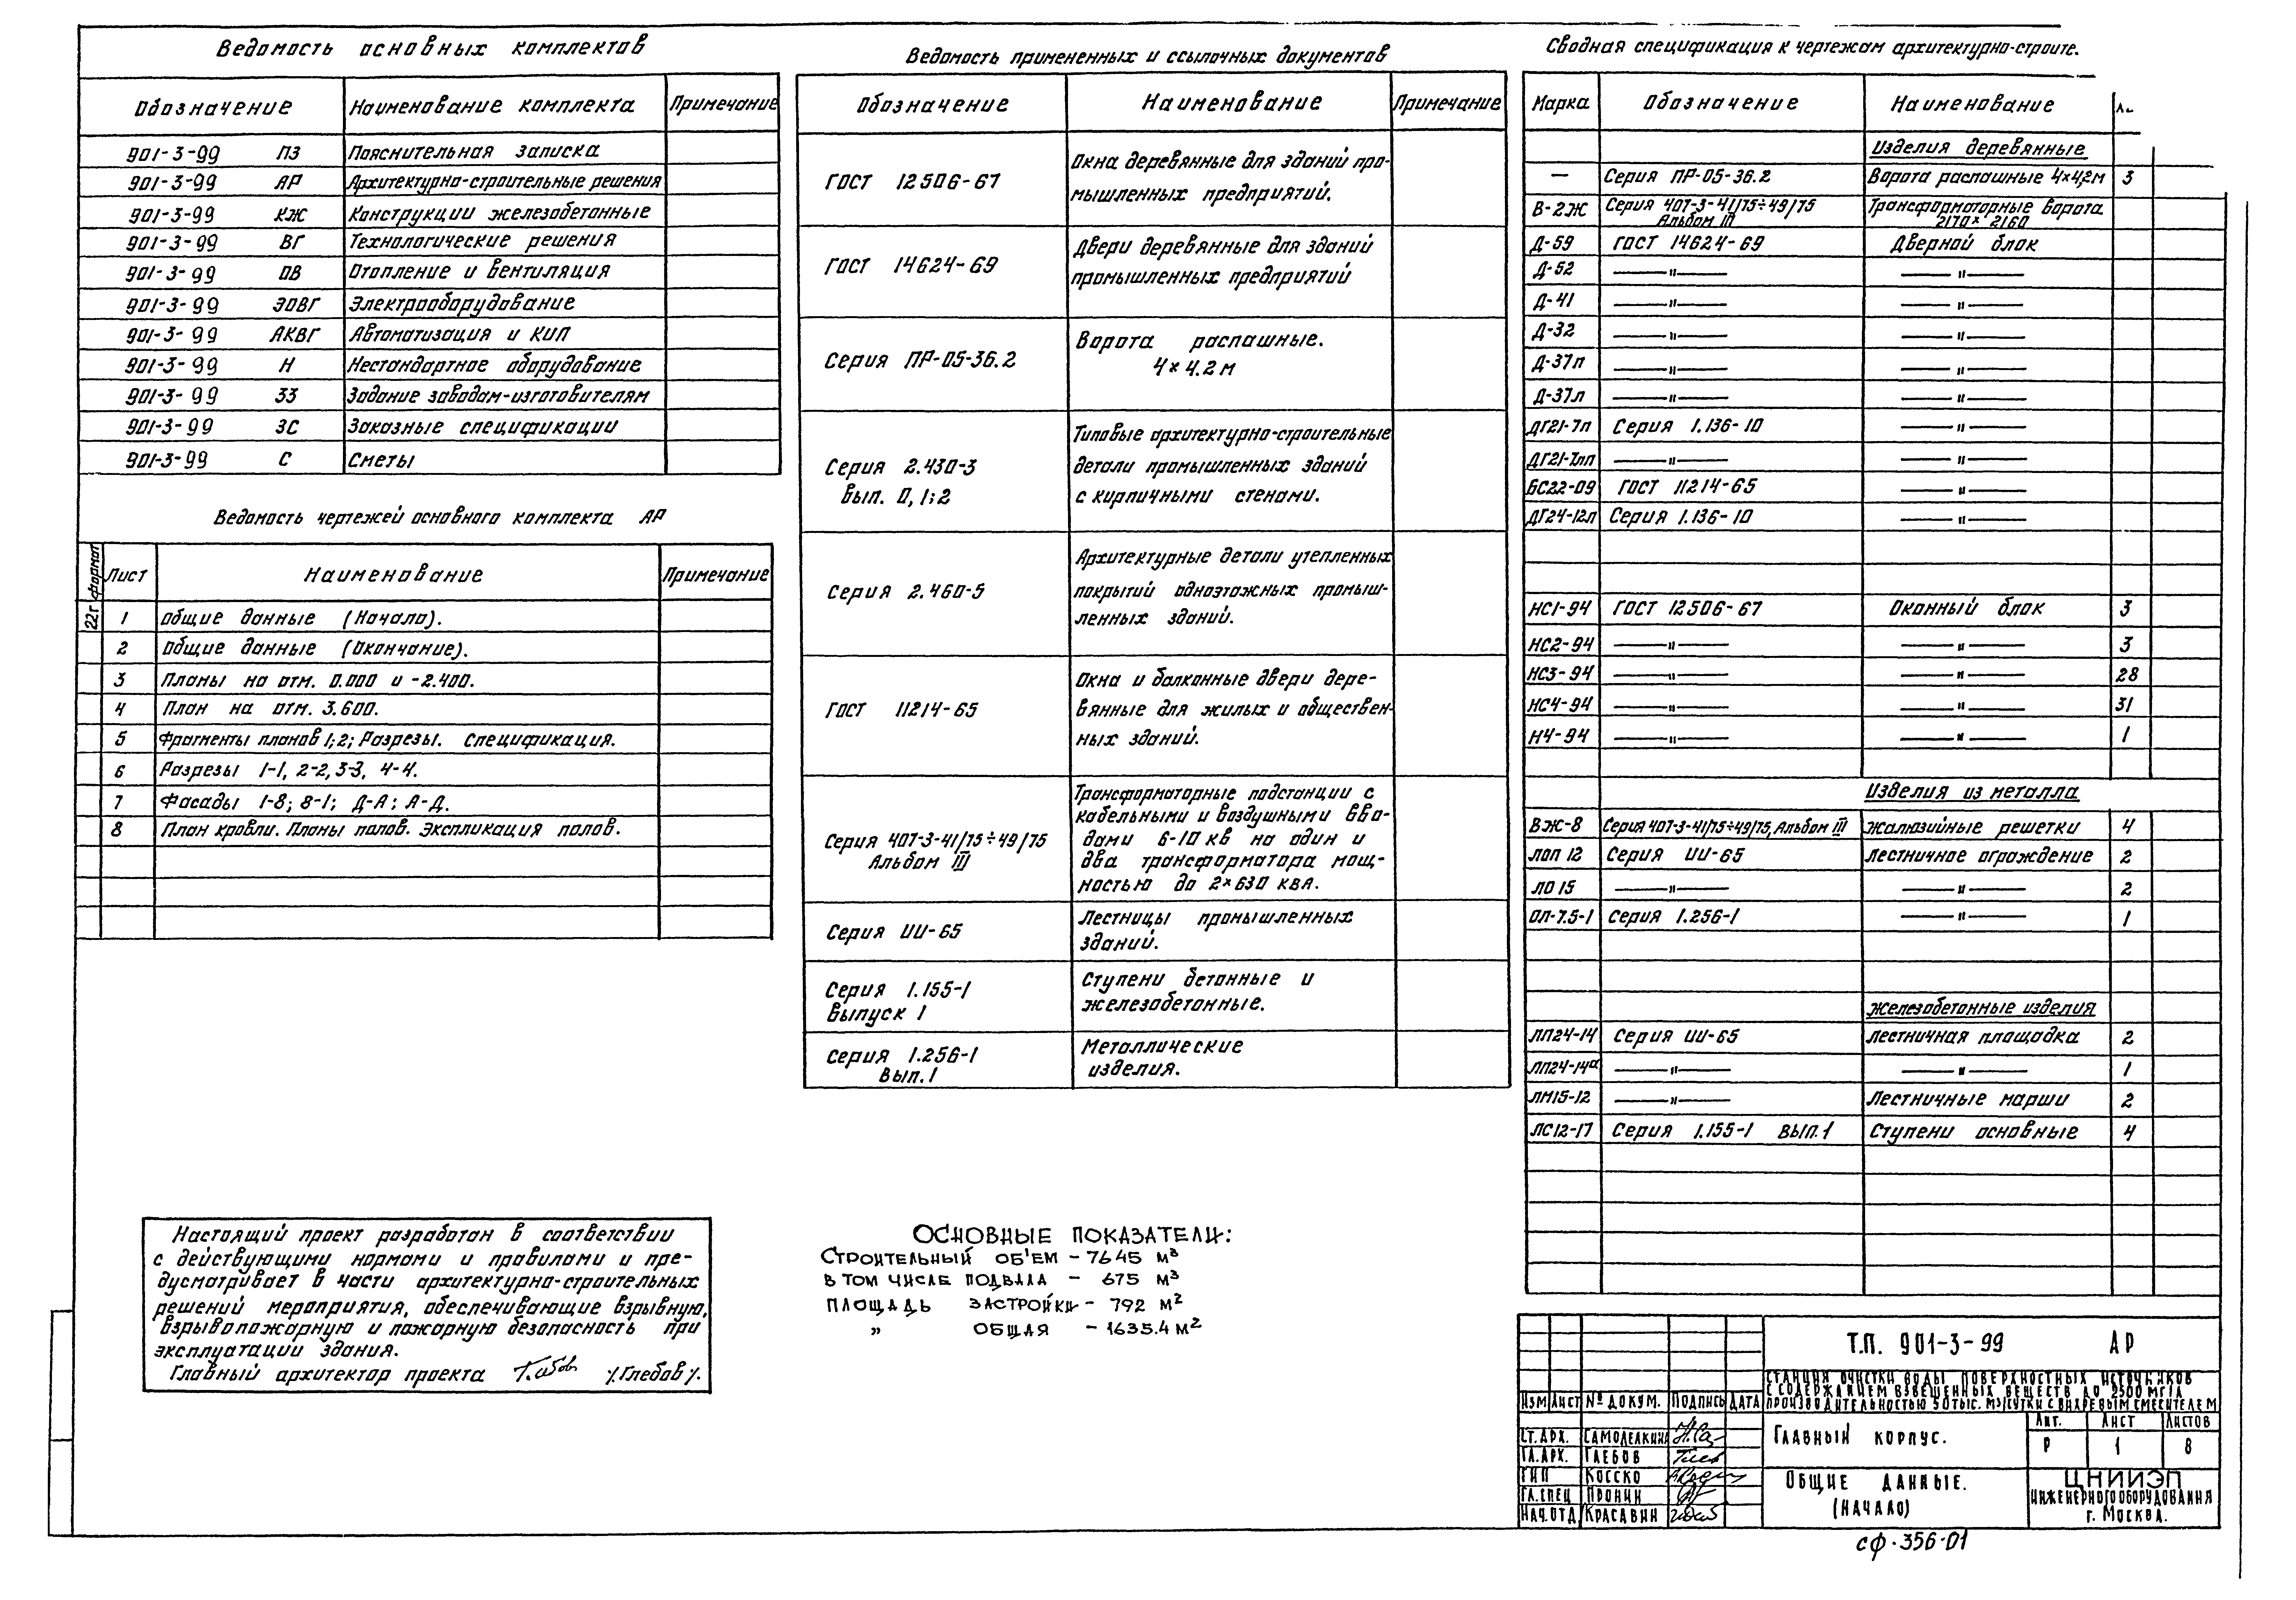 Ведомость основных комплектов
Обозначение Наименование комплекта Примечание
901-3-99 ПЗ Пояснительная записка
901-3-99 АР Архитектурно-строительные решения
901-3-99 КЖ Конструкции железобетонные
901-3-99 ВГ Технологические решения
901-3-99 ОВ Отопление и вентиляция
901-3-99 ЭОВГ Электрооборудование
901-3-99 АКВГ Автоматизация и КИП
901-3-99 Н Нестандартное оборудование
901-3-99 ЗЗ Задание заводам-изготовителям
901-3-99 ЗС Заказные спецификации
901-3-99 С Сметы
Ведомость чертежей основного комплекта АР
Формат Лист Наименование Примечание
22г 1 Общие данные (Начало).
2 Общие данные (Окончание).
3 Планы на отм. 0.000 и -2.400.
4 План на отм. 3.600.
5 Фрагменты планов 1;2; Разрезы. Спецификация.
6 Разрезы 1-1, 2-2, 3-3, 4-4.
7 Фасады 1-8; 8-1; Д-А; А-Д.
8 План кровли. Планы полов. Экспликация полов.
Настоящий проект разработан в соответствии
с действующими нормами и правилами и пре-
дусматривает в части архитектурно-строительных
решений мероприятия, обеспечивающие взрывную,
взрывопожарную и пожарную безопасность при
эксплуатации здания.
Главный архитектор проекта /Глебов/.
Ведомость примененных и ссылочных документов
Обозначение Наименование Примечание
ГОСТ 12506-67 Окна деревянные для зданий про-
мышленных предприятий.
ГОСТ 14624-69 Двери деревянные для зданий
промышленных предприятий
Серия ПР-05-36.2 Ворота распашные.
4×4.2м
Серия 2.430-3
Вып. 0,1;2
Типовые архитектурно-строительные
детали промышленных зданий
с кирпичными стенами.
Серия 2.460-5 Архитектурные детали утепленных
покрытий одноэтажных промыш-
ленных зданий.
ГОСТ 11214-65 Окна и балконные двери дере-
вянные для жилых и обществен-
ных зданий.
Серия 407-3-41/75÷49/75
Альбом III
Трансформаторные подстанции с
кабельными и воздушными вво-
дами 6-10 кв на один и
два трансформатора мощ-
ностью до 2×630 ква.
Серия ИИ-65 Лестницы промышленных
зданий.
Серия 1.155-1
Выпуск 1
Ступени бетонные и
железобетонные.
Серия 1.256-1
Вып. 1
Металлические
изделия.
Основные показатели:
Строительный об'ем - 7645 м³
в том числе подвала - 675 м³
площадь застройки - 792 м²
" общая - 1635.4 м²
Сводная спецификация к чертежам архитектурно-строите.
Марка Обозначение Наименование
Изделия деревянные
— Серия ПР-05-36.2 Ворота распашные 4×4,2м 3
В-2Ж Серия 407-3-41/75÷49/75 Трансформаторные ворота
Альбом III 2170×2160
Д-59 ГОСТ 14624-69 Дверной блок
Д-52 —"— —"—
Д-41 —"— —"—
Д-32 —"— —"—
Д-37п —"— —"—
Д-37л —"— —"—
ДГ21-7п Серия 1.136-10 —"—
ДГ21-7лп —"— —"—
БС22-09 ГОСТ 11214-65 —"—
ДГ24-12л Серия 1.136-10 —"—
НС1-94 ГОСТ 12506-67 Оконный блок 3
НС2-94 —"— —"— 3
НС3-94 —"— —"— 28
НС4-94 —"— —"— 31
Н4-94 —"— —"— 1
Изделия из металла
ВЖ-8 Серия 407-3-41/75÷49/75, Альбом III Жалюзийные решетки 4
ЛОП 12 Серия ИИ-65 Лестничное ограждение 2
ЛО 15 —"— —"— 2
ОЛ-7.5-1 Серия 1.256-1 —"— 1
Железобетонные изделия
ЛП24-14 Серия ИИ-65 Лестничная площадка 2
ЛП24-14а —"— —"— 1
ЛМ15-12 —"— Лестничные марши 2
ЛС12-17 Серия 1.155-1 вып.1 Ступени основные 4
Т.П. 901-3-99 АР
Станция очистки воды поверхностных источников
с содержанием взвешенных веществ до 2500 мг/л
производительностью 50тыс. м³/сутки с вихревым смесителем
Изм Лист № докум. Подпись Дата
Ст.арх. Самоделкина
Гл.арх. Глебов
ГИП Косско
Гл.спец Пронин
Нач.отд Красавин
Главный корпус.
Лит. Лист Листов
Р 1 8
Общие данные.
(Начало)
ЦНИИЭП
инженерного оборудования
г. Москва.
сф.356-01